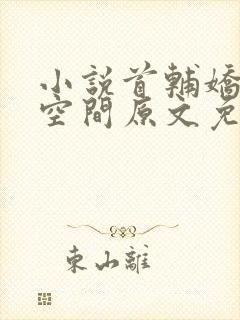 小說首輔嬌
空間原文免
東山離